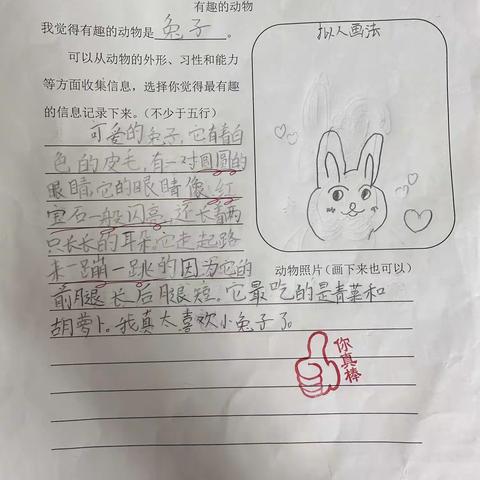 有趣的动物
我觉得有趣的动物是 兔子 。
可以从动物的外形、习性和能力
等方面收集信息，选择你觉得最有趣
的信息记录下来。（不少于五行）
可爱的兔子，它有着白
色的皮毛，有一对圆圆的
眼睛，它的眼睛像红
宝石一般闪亮，还长着两
只长长的耳朵，它走起路
来一蹦一跳的因为它的
前腿长后腿短。它最吃的是青菜和
胡萝卜。我真太喜欢小兔子了。
拟人画法
动物照片（画下来也可以）
你真棒